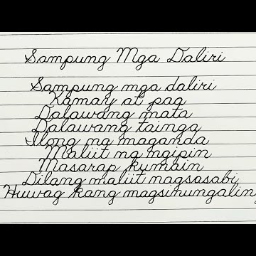 Sampung Mga Daliri
Sampung mga daliri
Kamay at paa
Dalawang mata
Dalawang tainga
Ilong na maganda
Maliit na ngipin
Masarap kumain
Dilang maliit nagsasabi
Huwag kang magsinungaling